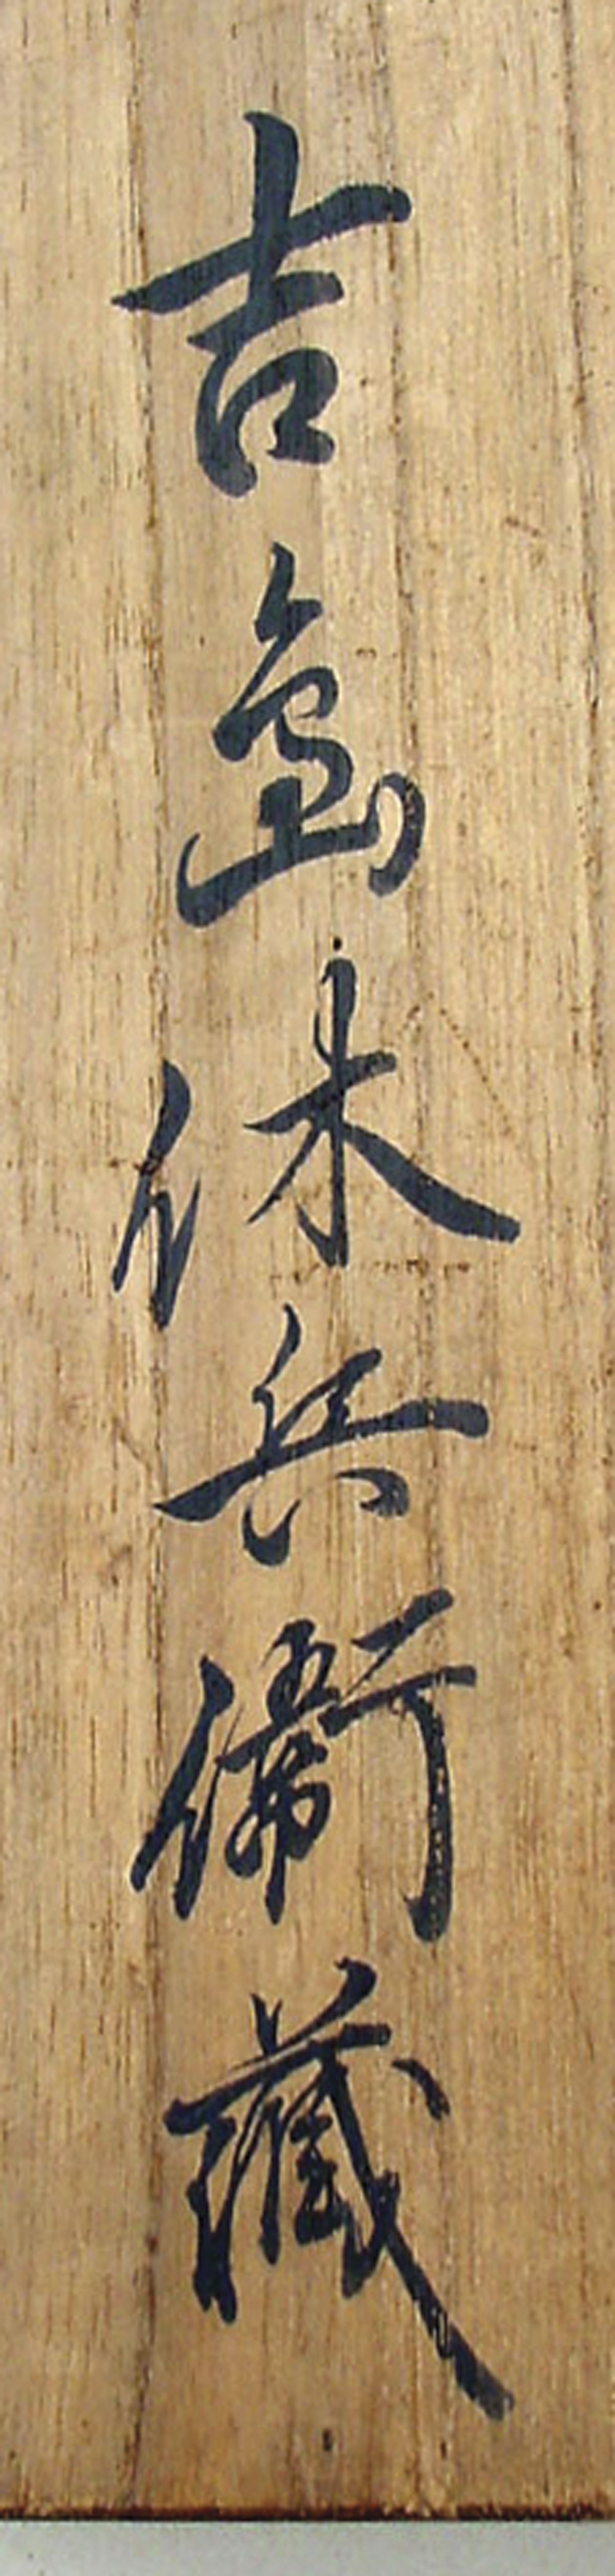 吉島休兵衛藏